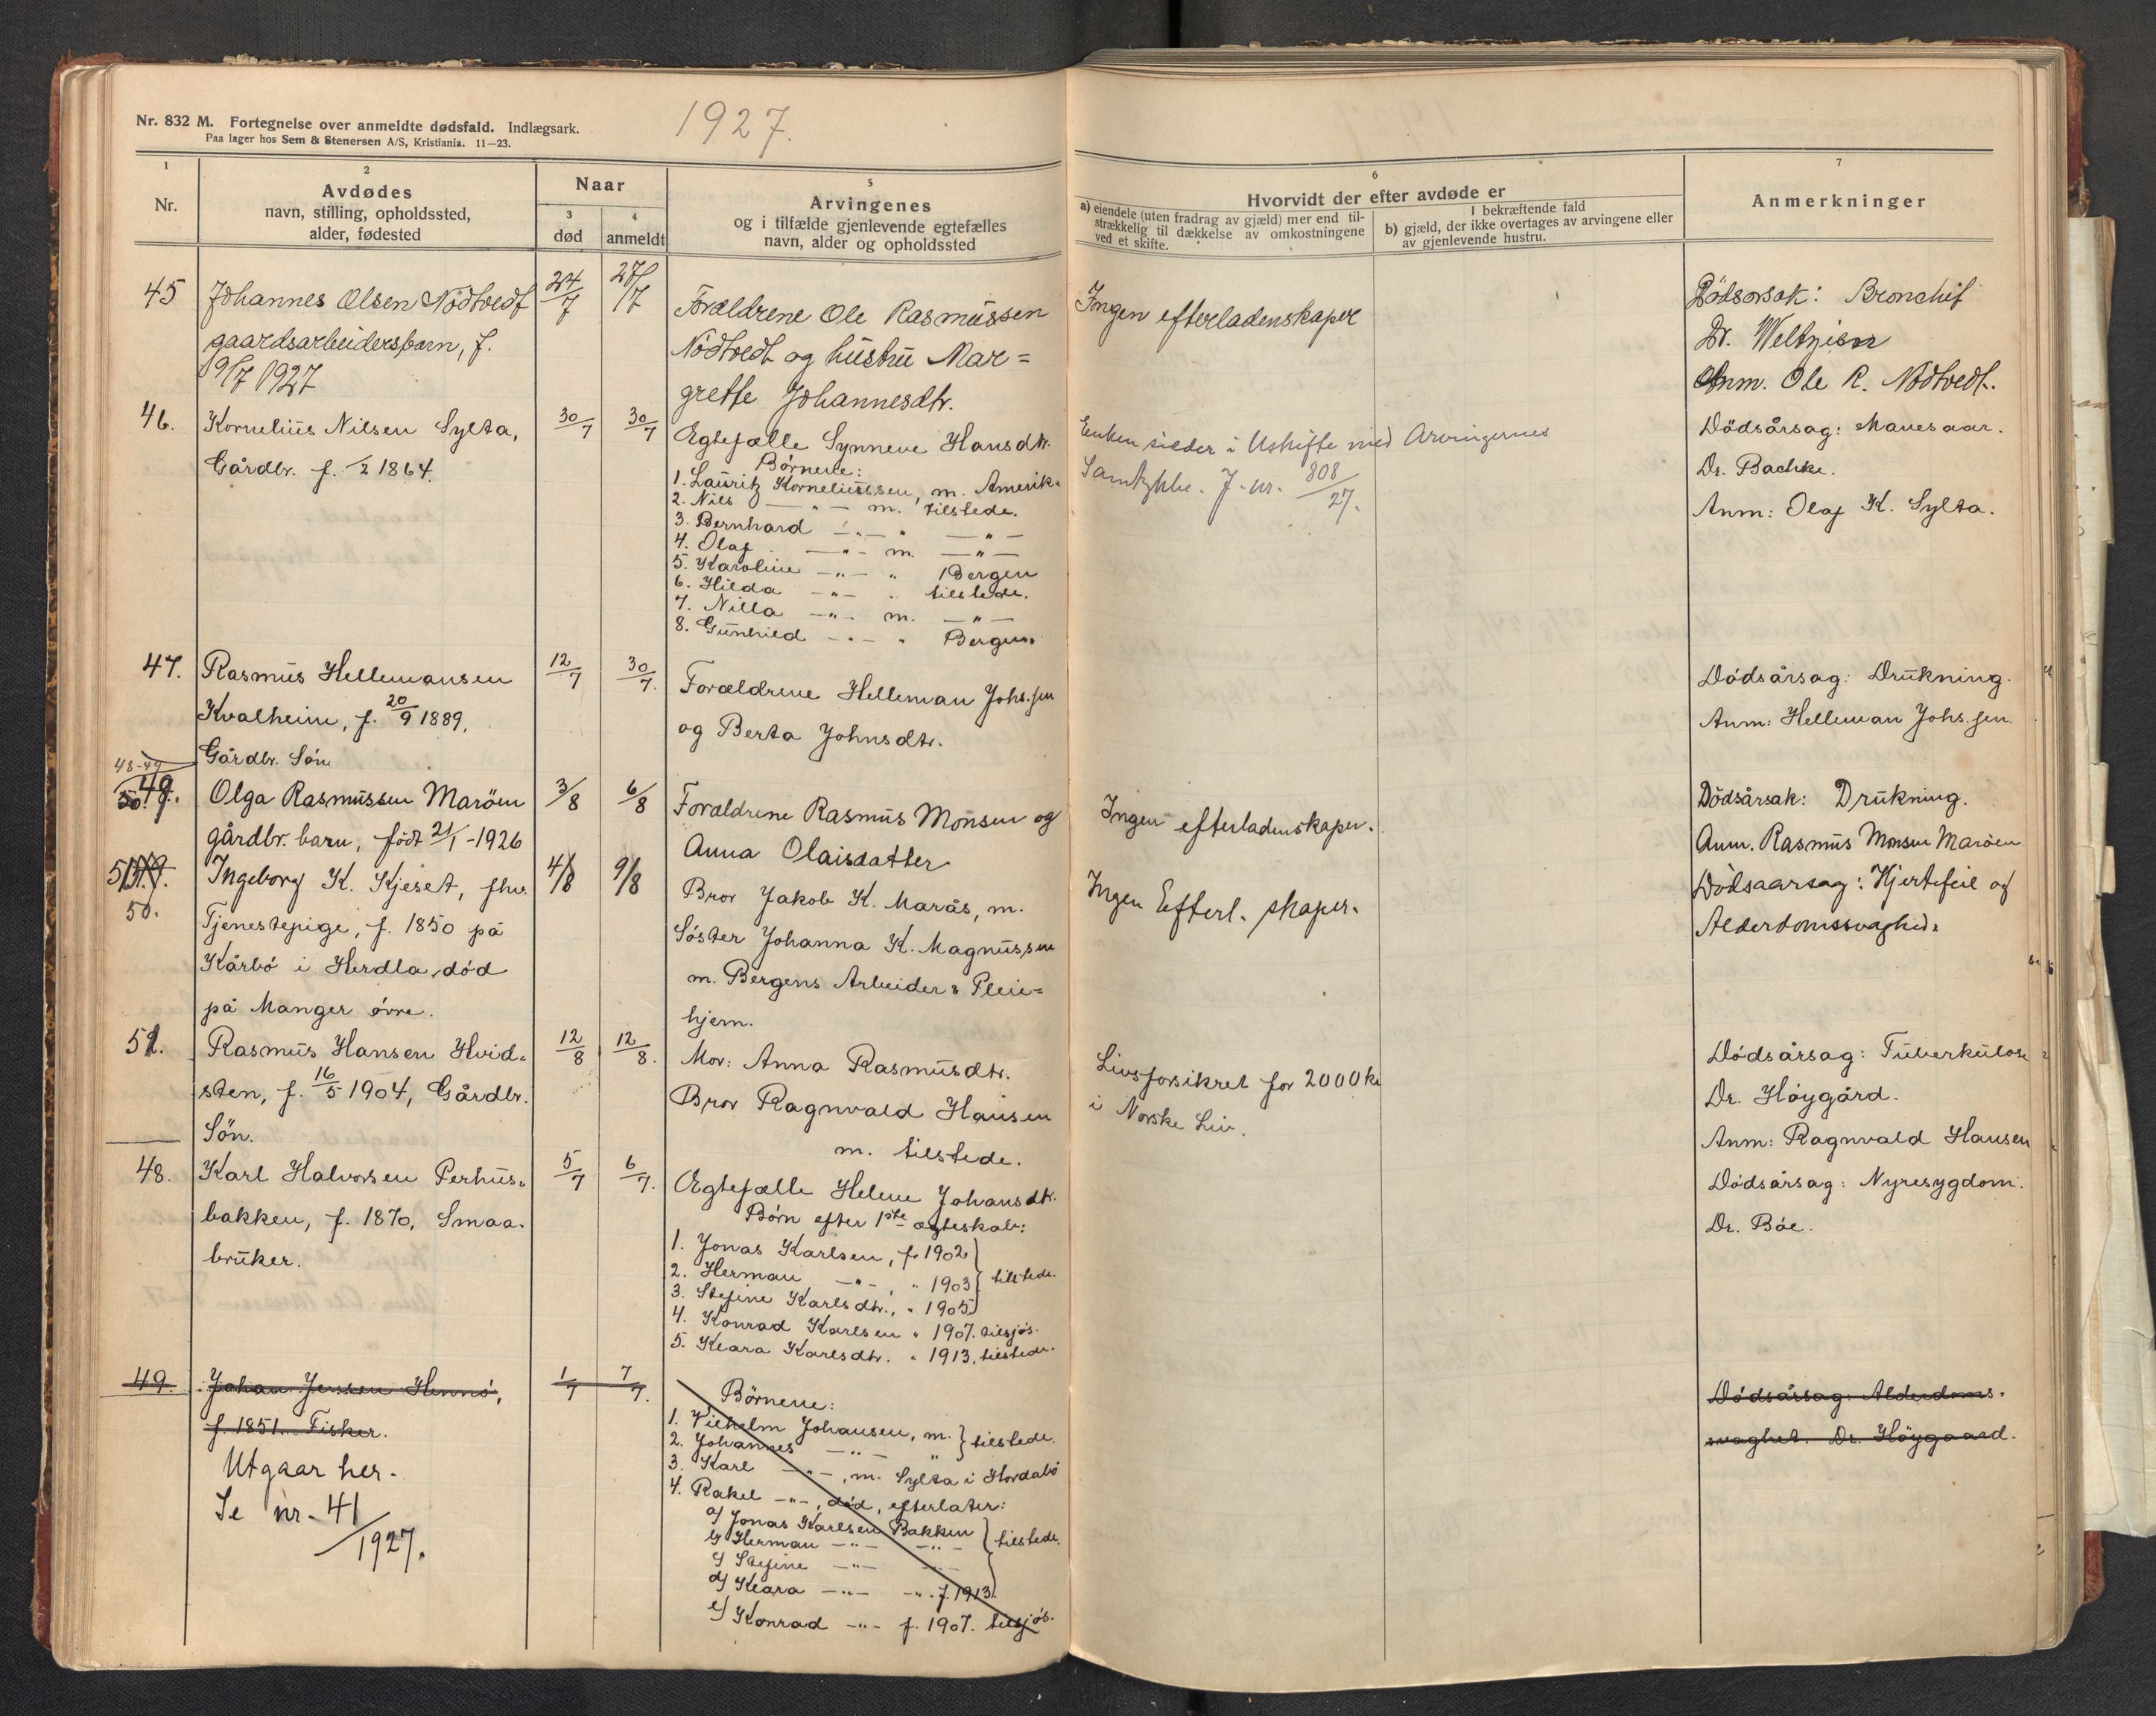 Nr. 832 M. Fortegnelse over anmeldte dødsfald. Indlægsark.
Paa lager hos Sem & Stenersen A/S, Kristiania. 11—23.
1927.
1
Nr.
2
Avdødes
navn, stilling, opholdssted,
alder, fødested
Naar
3
død
4
anmeldt
5
Arvingenes
og i tilfælde gjenlevende egtefælles
navn, alder og opholdssted
6
Hvorvidt der efter avdøde er
a) eiendele (uten fradrag av gjæld) mer end til-
strækkelig til dækkelse av omkostningene
ved et skifte.
I bekræftende fald
b) gjæld, der ikke overtages av arvingene eller
av gjenlevende hustru.
7
Anmerkninger
45
Johannes Olsen Nödtvedt
gaardsarbeidersbarn, f.
19/7 1927
24/7
27/7
Forældrene Ole Rasmussen
Nödtvedt og hustru Mar=
grethe Johannesdtr.
Ingen efterladenskaper
Dödsorsak: Bronchit
Dr. Weltzien
Anm. Ole R. Nödtvedt.
46.
Kornelius Nilsen Sylta,
Gårdbr. f. /2 1864.
30/7
30/7
Egtefælle Synneve Hansdtr.
Börnene:
1. Lauritz Korneliussen, m. Amerik.
2. Nils —"— m. tilstede.
3. Bernhard —"— " —"—
4. Olaf —"— m. —"—
5. Karoline —"— " Bergen
6. Hilda —"— " tilstede.
7. Nilla —"— m. —"—
8. Gunhild —"— " Bergen.
Enken sidder i Uskifte med Arvingernes
Samtykke. J-nr. 808/27.
Dödsårsag: Mavesaar.
Dr. Bachke.
Anm: Olaf K. Sylta.
47.
Rasmus Hellemansen
Kvalheim, f. 20/9 1889,
Gårdbr. Sön
12/7
30/7.
Forældrene Helleman Johs.sen
og Berta Johnsdtr.
Dödsårsag: Drukning.
Anm: Helleman Johs.sen.
48-49
49.
Olga Rasmussen Maröen
gårdbr. barn, född 21/1 -1926
3/8
6/8
Forældrene Rasmus Monsen og
Anna Olaisdatter
Ingen efterladenskaper.
Dödsårsak: Drukning.
Anm. Rasmus Monsen Maröen
50.
Ingeborg K. Kjeset, fhv.
Tjenestepige, f. 1850 på
Kårbö i Herdla, död
på Manger övre.
4/8
9/8
Bror Jakob K. Marås, m.
Söster Johanna K. Magnussen
m. Bergens Arbeiders Pleie=
hjem.
Ingen Efterl. skaper.
Dödsaarsag: Hjertefeil og
Alderdomssvaghed.
51.
Rasmus Hansen Hvid.
sten, f. 16/5 1904, Gårdbr.
Sön.
12/8
12/8.
Mor: Anna Rasmusdtr.
Bror Ragnvald Hansen
m. tilstede.
Livsforsikret for 2000 kr
i Norske Liv.
Dödsårsag: Tuberkulose
Dr. Höygård.
Anm: Ragnvald Hansen
48.
Karl Halvorsen Perhus.
bakken, f. 1870, Smaa.
bruker.
5/7
6/7.
Egtefælle Helene Johansdtr.
Börn efter 1ste ægteskab:
1. Jonas Karlsen, f. 1902
2. Herman —"—, " 1903 } tilstede.
3. Stefine Karlsdtr., " 1905
4. Konrad Karlsen " 1907. tilsjös.
5. Klara Karlsdtr. " 1913, tilstede.
Dödsårsag: Nyresygdom.
Dr. Böe.
49.
Johan Jenssen Hennö,
f. 1851. Fisker.
Utgaar her.
Se nr. 41/1927.
1/7
7/7.
Börnene:
1. Vilhelm Johansen, m. } tilstede.
2. Johannes —"— "
3. Karl —"—, m. Sylta i Hordabö
4. Rakel —"—, död, efterlater:
a) Jonas Karlsen Bakken } tilstede.
b) Herman —"— —"—
c) Stefine —"— —"—
d) Klara —"— —"— f. 1913.
e) Konrad —"— f. 1907. tilsjös.
Dödsårsag: Alderdoms.
svaghet. Dr. Höygaard.